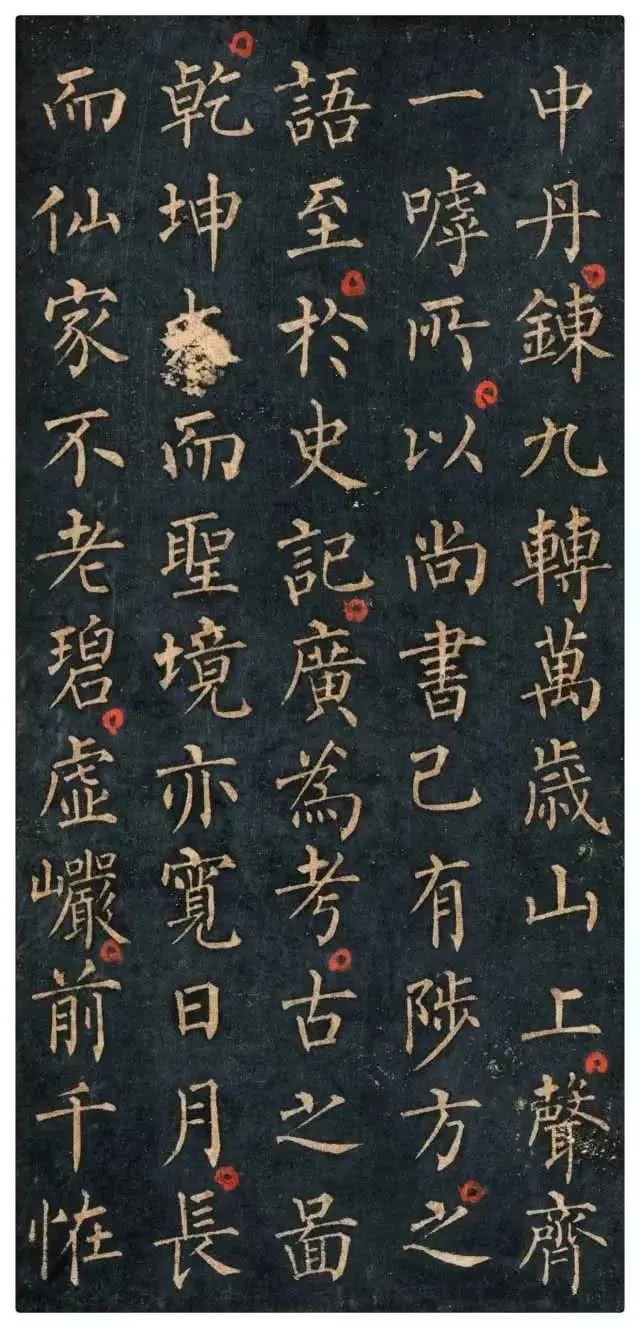 申丹鍊九轉萬歳山上聲齊
一嘑所以尚書已有陟方之
語至於史記廣為考古之圖
乾坤大而聖境亦寬日月長
而仙家不老碧虛巗前千恠